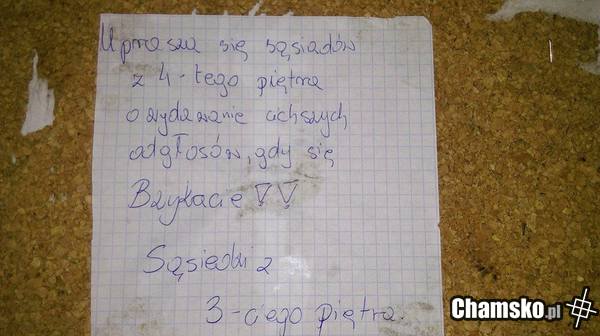 Uprasza się sąsiadów
z 4-tego piętra
o wydawanie cichszych
odgłosów, gdy się
Bzykacie !!
Sąsiedzi z
3-ciego piętra.
Chamsko.pl